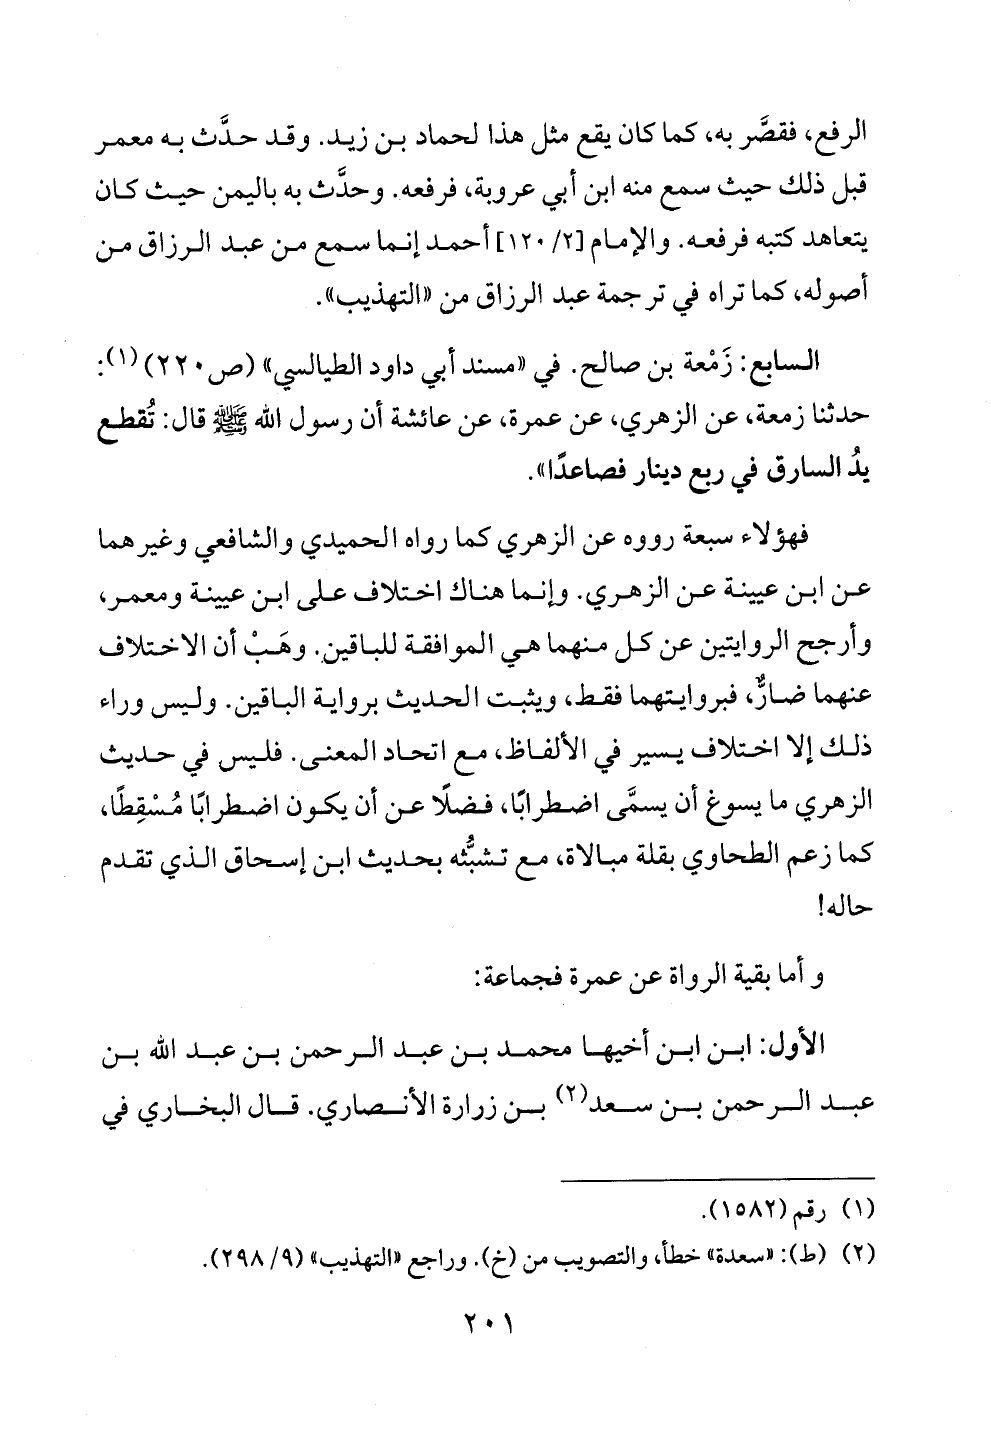 الرفع، فقصَّر به، كما كان يقع مثل هذا لحماد بن زيد. وقد حدَّث به معمر
قبل ذلك حيث سمع منه ابن أبي عروبة، فرفعه. وحدَّث به باليمن حيث كان
يتعاهد كتبه فرفعه. والإمام [٢/ ١٢٠] أحمد إنما سمع من عبد الرزاق من
أصوله، كما تراه في ترجمة عبد الرزاق من «التهذيب».
السابع: زَمْعة بن صالح. في «مسند أبي داود الطيالسي» (ص٢٢٠)(١):
حدثنا زمعة، عن الزهري، عن عمرة، عن عائشة أن رسول الله ﷺ قال: تُقطع
يدُ السارق في ربع دينار فصاعدًا».
فهؤلاء سبعة رووه عن الزهري كما رواه الحميدي والشافعي وغيرهما
عن ابن عيينة عن الزهري. وإنما هناك اختلاف على ابن عيينة ومعمر،
وأرجح الروايتين عن كل منهما هي الموافقة للباقين. وهَبْ أن الاختلاف
عنهما ضارٌّ، فبروايتهما فقط، ويثبت الحديث برواية الباقين. وليس وراء
ذلك إلا اختلاف يسير في الألفاظ، مع اتحاد المعنى. فليس في حديث
الزهري ما يسوغ أن يسمَّى اضطرابًا، فضلًا عن أن يكون اضطرابًا مُسْقِطًا،
كما زعم الطحاوي بقلة مبالاة، مع تشبُّثه بحديث ابن إسحاق الذي تقدم
حاله!
و أما بقية الرواة عن عمرة فجماعة:
الأول: ابن ابن أخيها محمد بن عبد الرحمن بن عبد الله بن
عبد الرحمن بن سعد(٢) بن زرارة الأنصاري. قال البخاري في
(١) رقم (١٥٨٢).
(٢) (ط): «سعدة» خطأ، والتصويب من (خ). وراجع «التهذيب» (٩/ ٢٩٨).
٢٠١